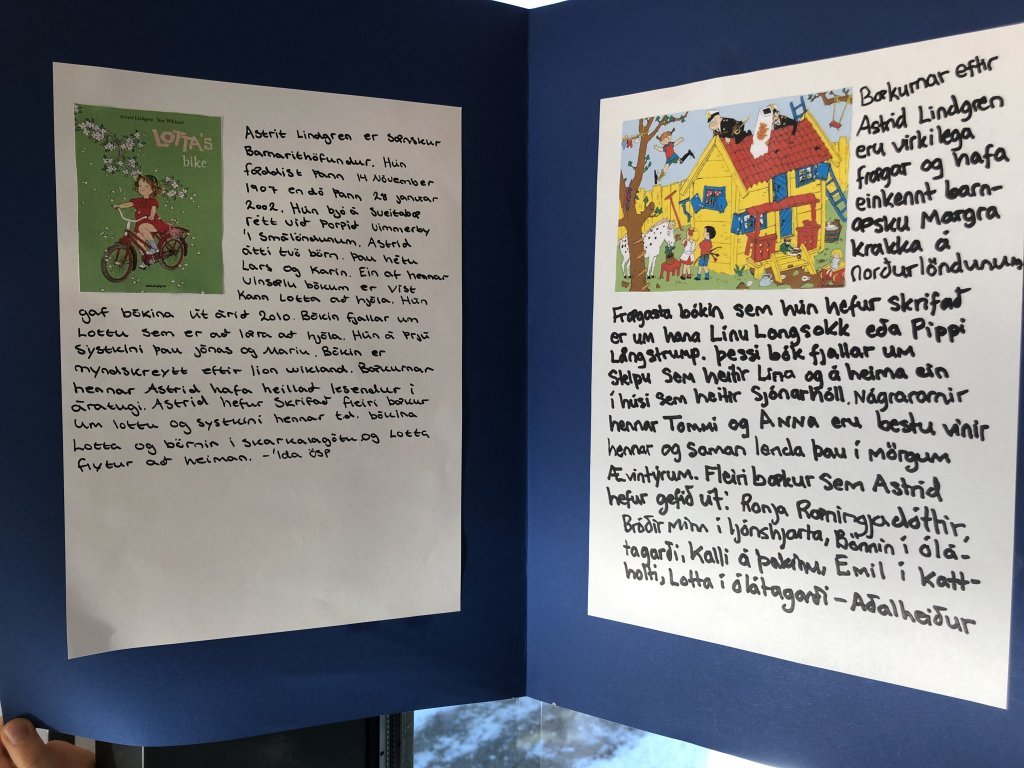 Astrid Lindgren Ilon Wikland
LOTTA'S
bike
Astrit Lindgren er sænskur
Barnarithöfundur. Hún
fæddist þann 14 Nóvember
1907 en dó þann 28 janúar
2002. Hún bjó á Sveitabæ
rétt við Þorpið Vimmerby
í Smálöndunum. Astrid
átti tvö börn. Þau hétu
Lars og Karin. Ein af hennar
Vinsælu bókum er Víst
Kann Lotta að hjóla. Hún
gaf bókina út árið 2010. Bókin fjallar um
Lottu sem er að læra að hjóla. Hún á Þrjú
Systkini Þau jónas og Mariu. Bókin er
myndskreytt eftir lion wikland. Bækurnar
hennar Astrid hafa heillað lesendur í
áratugi. Astrid hefur Skrifað fleiri bækur
um lottu og systkini hennar t.d. bókina
Lotta og börnin í skarkalagötu og Lotta
flytur að heiman. - Ída ösp
Bækurnar eftir
Astrid Lindgren
eru virkilega
frægar og hafa
einkennt barn-
æsku Margra
krakka á
Norðurlöndunum
Frægasta bókin sem hún hefur skrifað
er um hana Línu Langsokk eða Pippi
Långstrump. Þessi bók fjallar um
Stelpu Sem heitir Lína og á heima ein
í húsi sem heitir Sjónarhóll. Nágrarnir
hennar Tommi og Anna eru bestu vinir
hennar og saman lenda þau í mörgum
Ævintýrum. Fleiri bækur Sem Astrid
hefur gefið út: Ronja Ræningjadóttir,
Bróðir Minn í ljónshjarta, Börnin í Ólá-
tagarði, Kalli á þakinu, Emil í Katt-
holti, Lotta í Ólátagarði - Aðalheiður